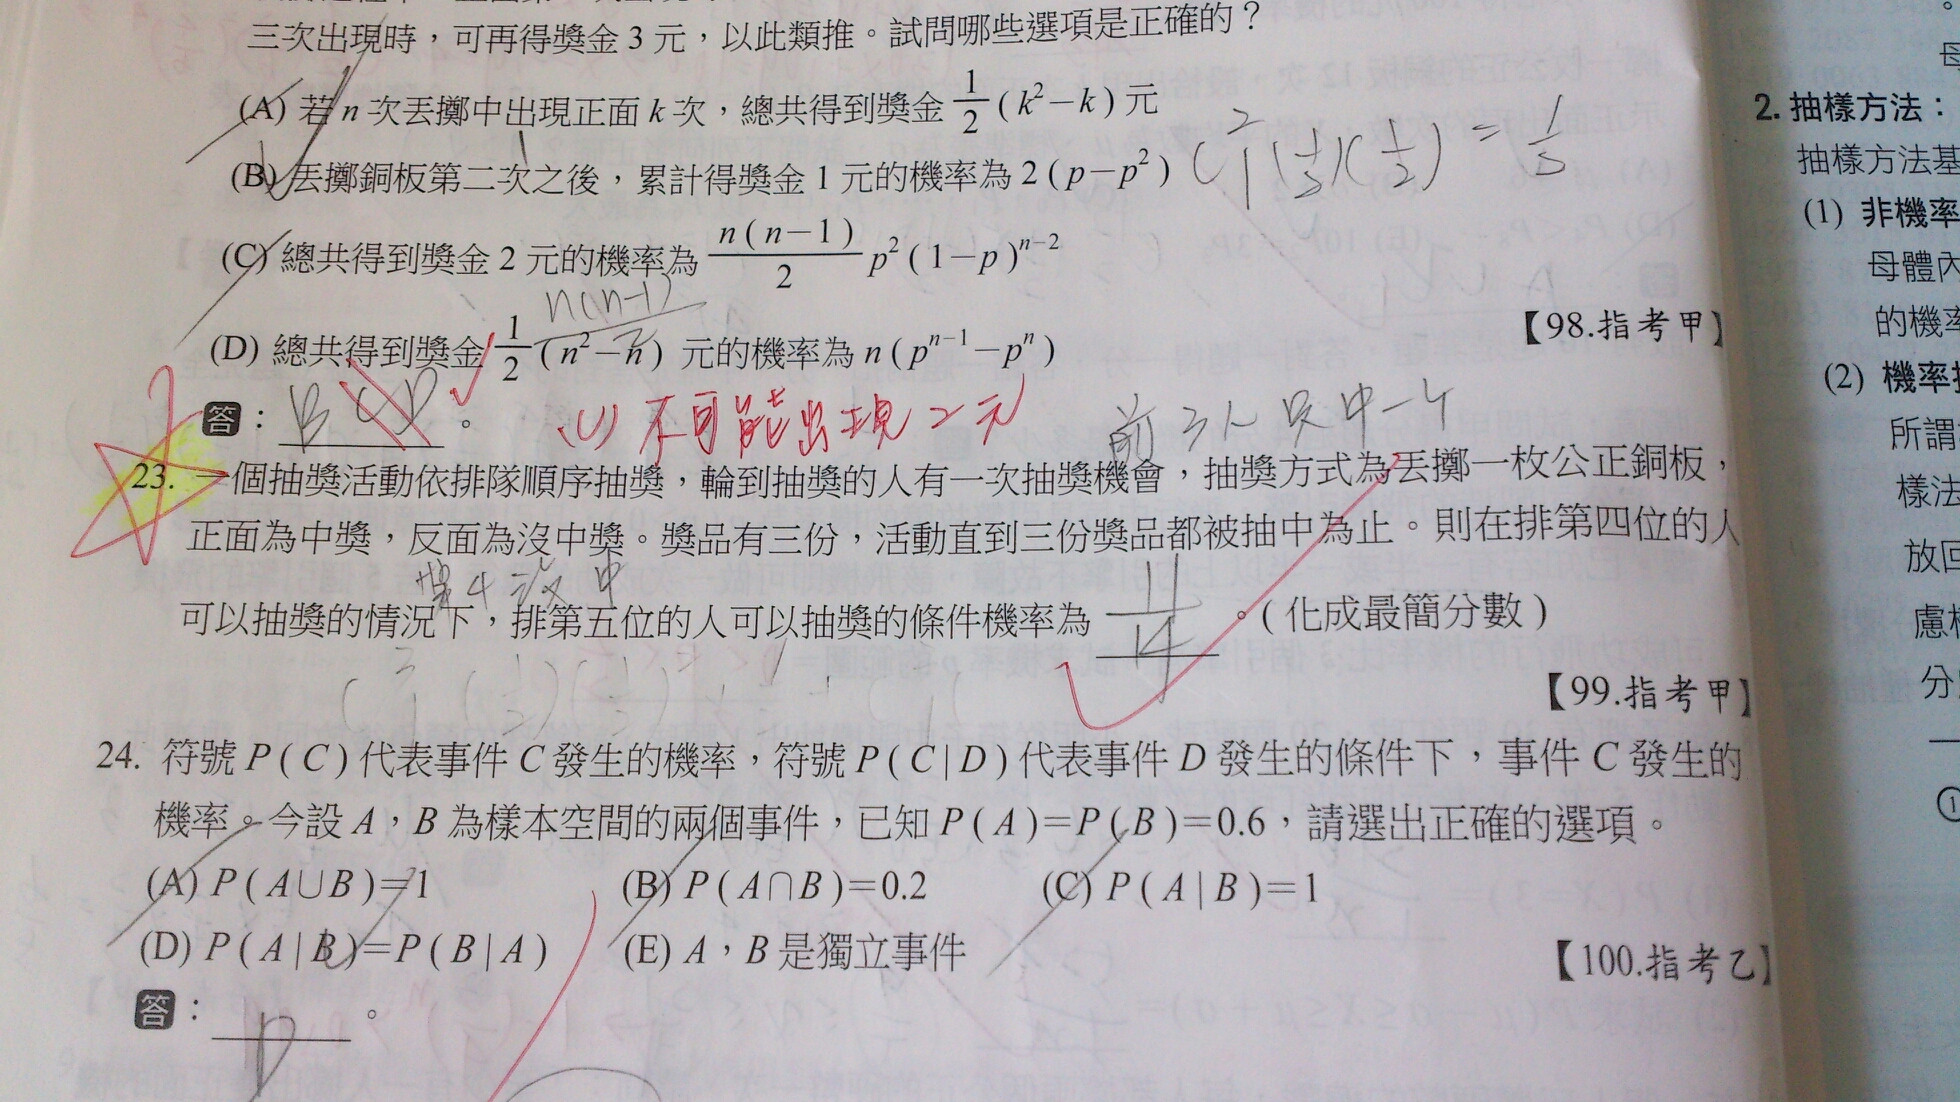 三次出現時，可再得獎金 3 元，以此類推。試問哪些選項是正確的？
(A) 若 n 次丟擲中出現正面 k 次，總共得到獎金 1/2 (k²−k) 元
(B) 丟擲銅板第二次之後，累計得獎金 1 元的機率為 2(p−p²)
(C) 總共得到獎金 2 元的機率為 n(n−1)/2 p²(1−p)ⁿ⁻²
n(n-1)
(D) 總共得到獎金 1/2 (n²−n) 元的機率為 n(pⁿ⁻¹−pⁿ)
【98.指考甲】
答： B C D 。
(C) 不可能出現 2 元
前 3 人只中一個
23. 一個抽獎活動依排隊順序抽獎，輪到抽獎的人有一次抽獎機會，抽獎方式為丟擲一枚公正銅板，
正面為中獎，反面為沒中獎。獎品有三份，活動直到三份獎品都被抽中為止。則在排第四位的人
第 4 沒中
可以抽獎的情況下，排第五位的人可以抽獎的條件機率為 11/14 。(化成最簡分數)
【99.指考甲】
24. 符號 P(C) 代表事件 C 發生的機率，符號 P(C|D) 代表事件 D 發生的條件下，事件 C 發生的
機率。今設 A，B 為樣本空間的兩個事件，已知 P(A)=P(B)=0.6，請選出正確的選項。
(A) P(A∪B)=1 (B) P(A∩B)=0.2 (C) P(A|B)=1
(D) P(A|B)=P(B|A) (E) A，B 是獨立事件
【100.指考乙】
答： D 。
2. 抽樣方法：
抽樣方法基
(1) 非機率
母體內
的機率
(2) 機率
所謂
樣法
放回
慮
分
①